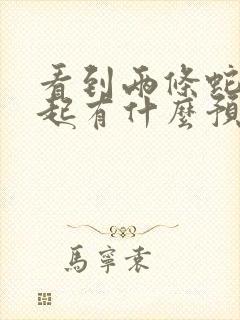 看到兩條蛇
起有什麼預
馬寧袁